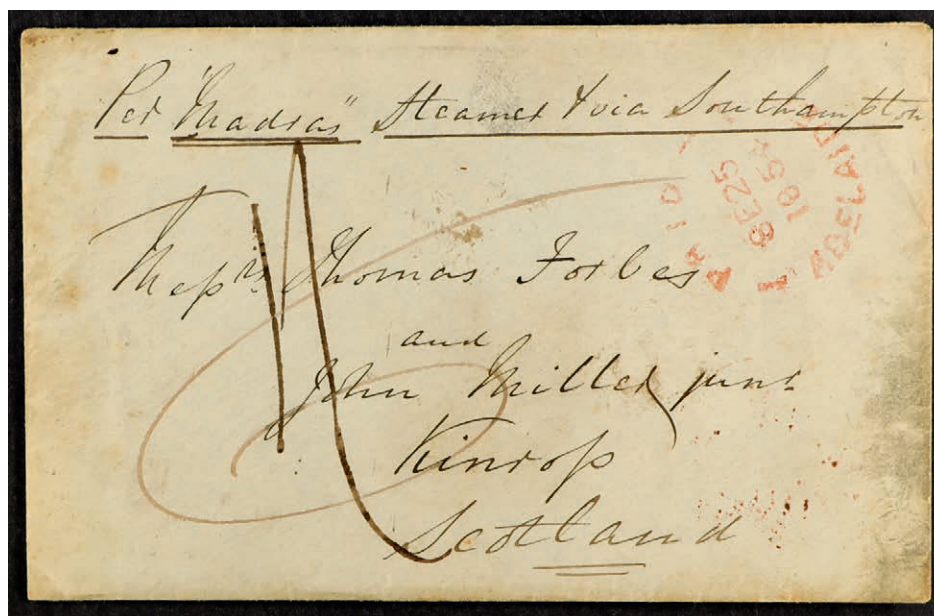 Per "Madras" Steamer & via Southampton
ADELAIDE
SE 25
1854
Messrs Thomas Forbes
and
John Miller junr
Kinross
Scotland